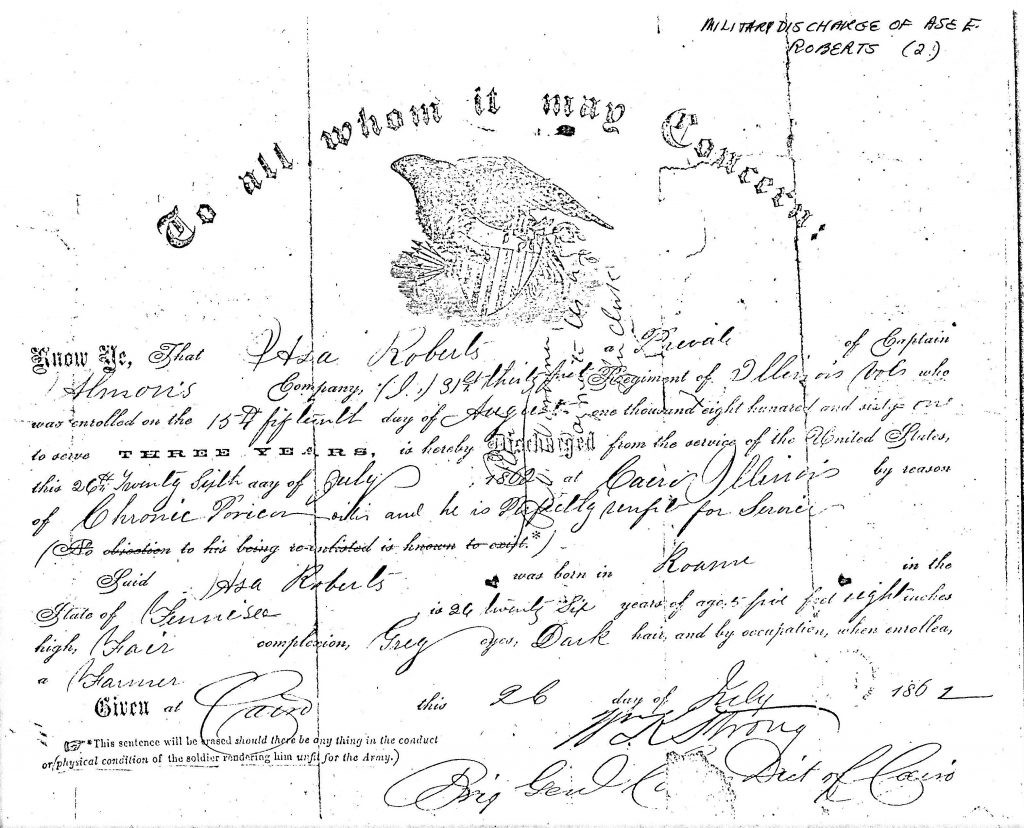 MILITARY DISCHARGE OF ASE E.
ROBERTS (2)
To all whom it may Concern.
Know Ye, That Asa Roberts a Private of Captain
Almon's Company, (I.) 31st thirty first Regiment of Illinois Vols who
was enrolled on the 15th fifteenth day of August one thousand eight hundred and sixty one
to serve THREE YEARS, is hereby Discharged from the service of the United States,
this 26th Twenty Sixth day of July 1862 at Cairo Illinois by reason
of Chronic and he is unfit for Service
(No objection to his being re-enlisted is known to exist.*)
Said Asa Roberts was born in Roane in the
State of Tennesee is 26 twenty Six years of age, 5 five feet eight inches
high, Fair complexion, Grey eyes, Dark hair, and by occupation, when enrolled,
a Farmer
Given at Cairo this 26 day of July 1862
Wm K Strong
Brig Genl Dist of Cairo
*This sentence will be erased should there be any thing in the conduct
or physical condition of the soldier rendering him unfit for the Army.)